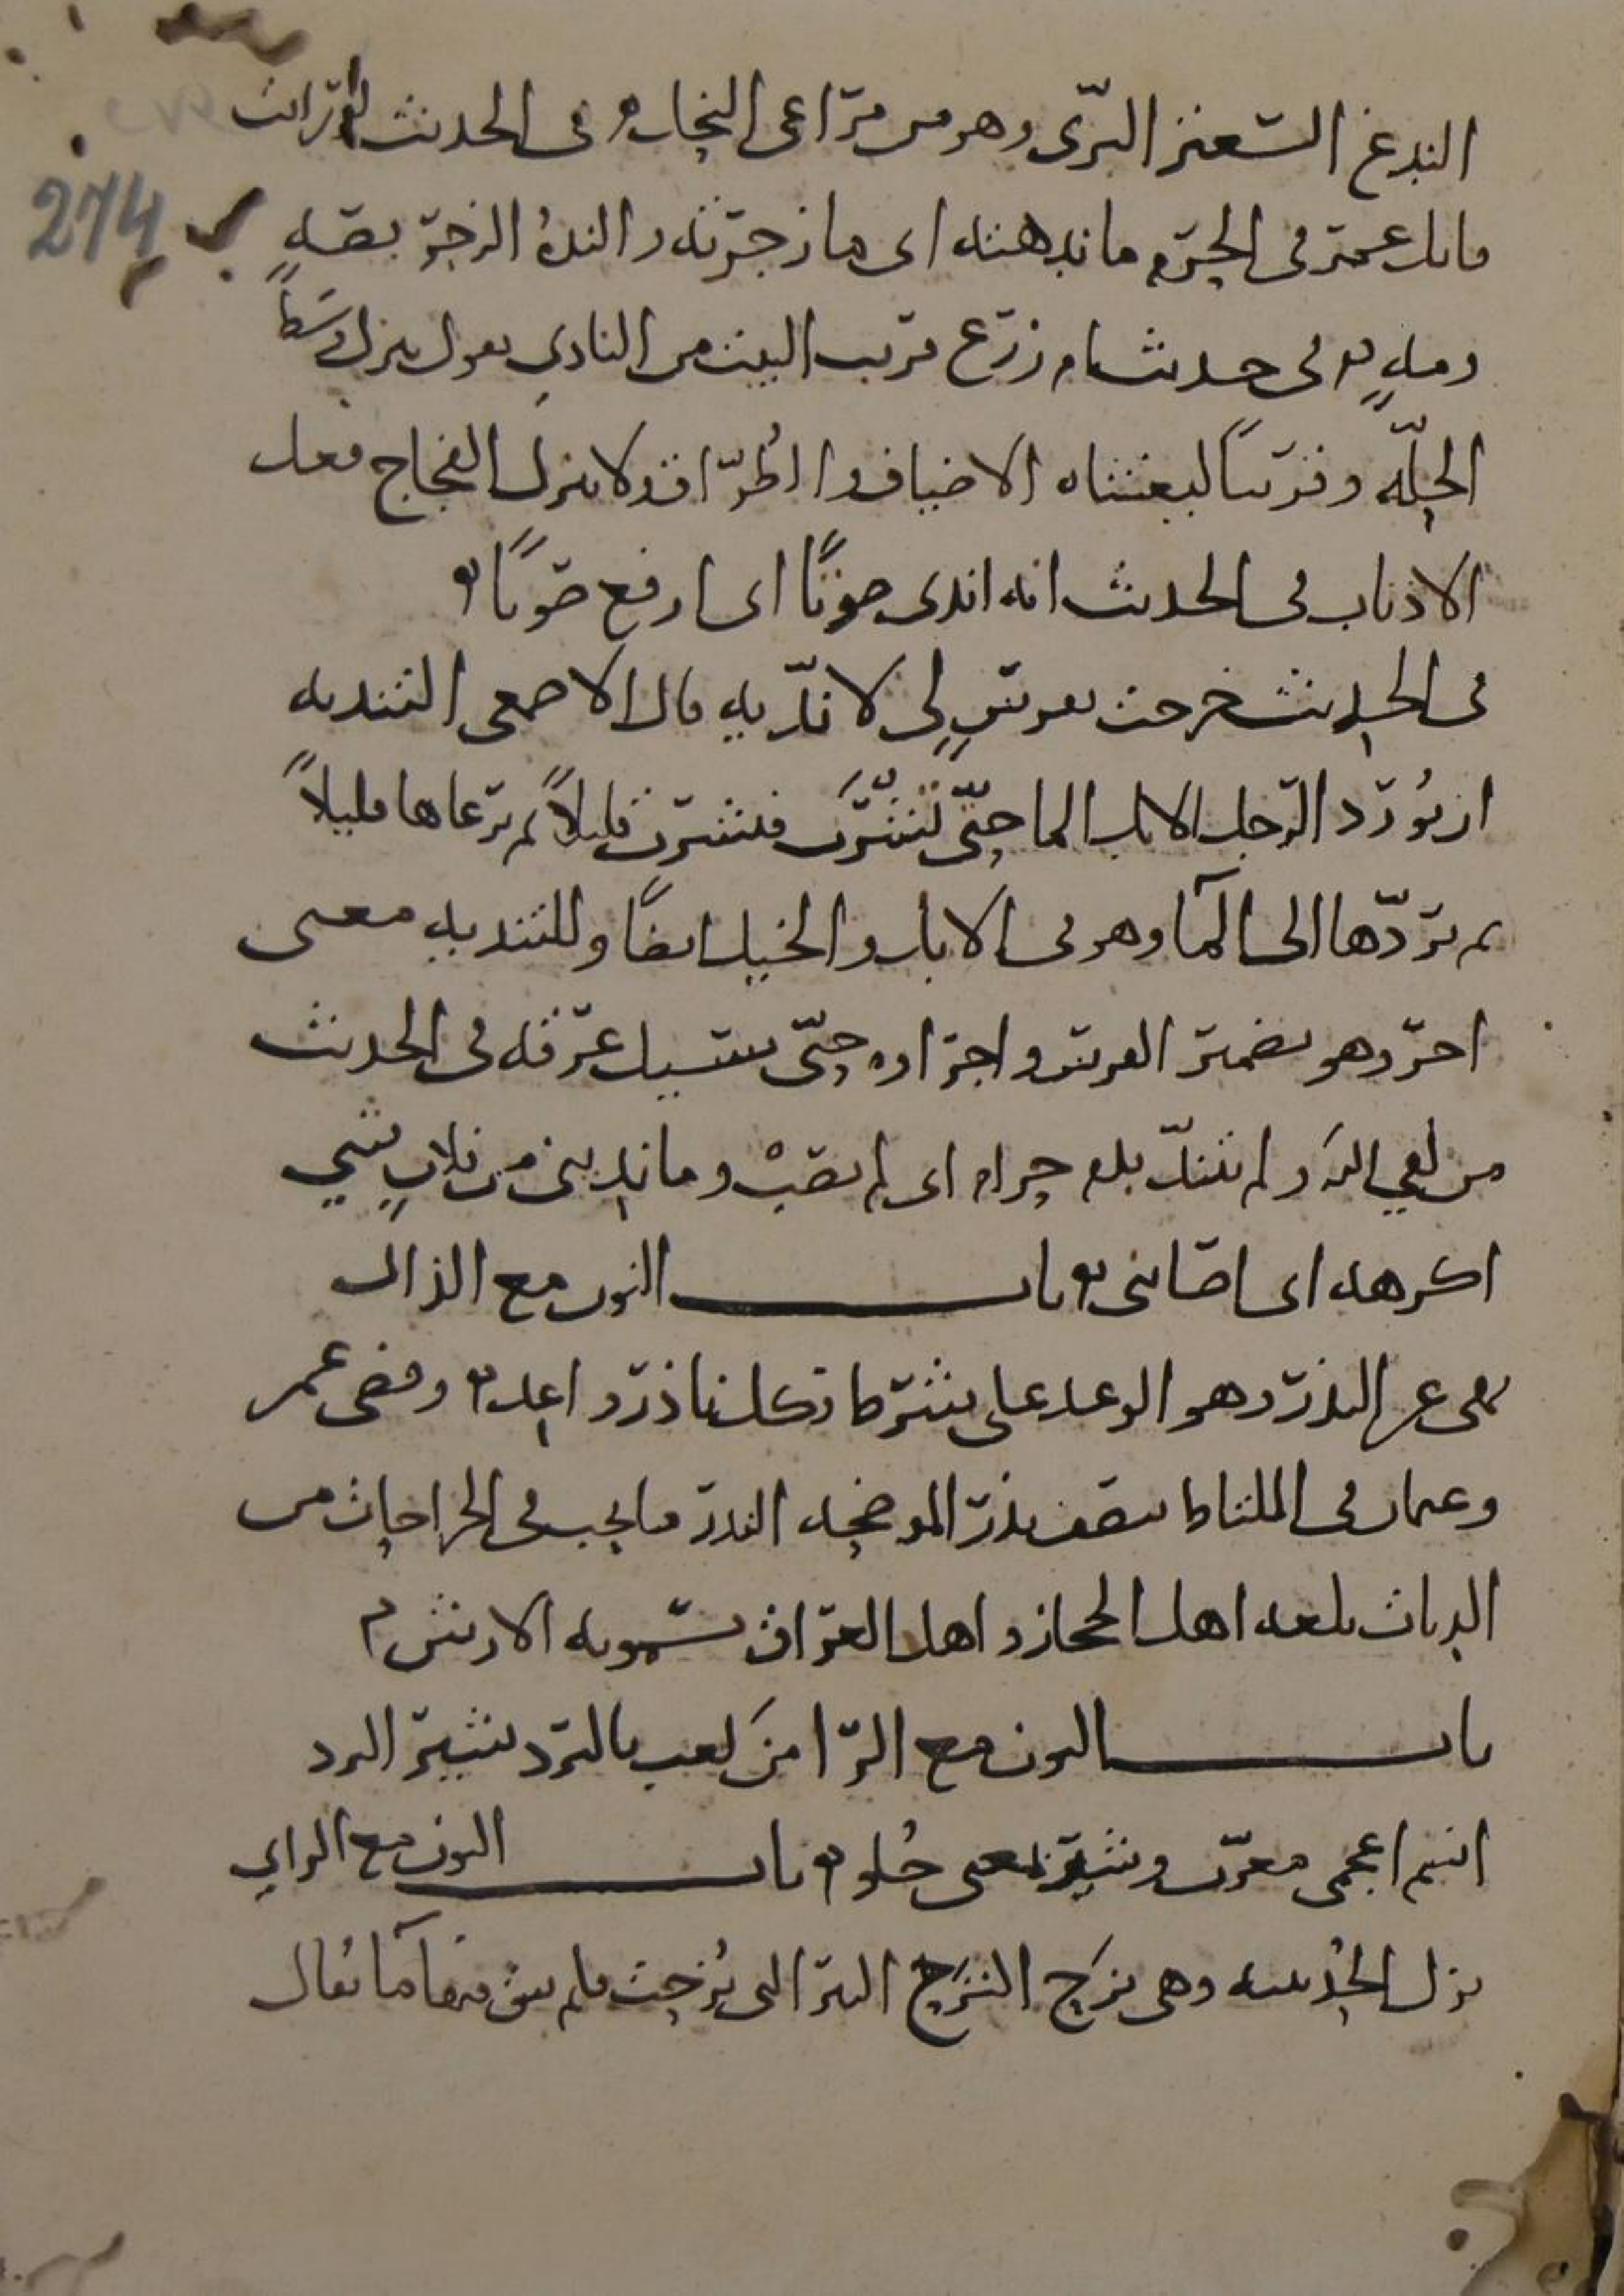 الندغ السعتر البرى وهو من مراعى النحل في الحديث لو رايت
274
قاتل عمر في الحرم ما ندهته اى ما زجرته والنده الزجر بصه
ومه في حديث ام زرع قريب البيت من النادي يقول ينزل وسط
الحلة وقريبا ليغشاه الاضياف والطراق ولا ينزل الفجاج فعل
الاذناب في الحديث انه اندى صوتا اى ارفع صوتا
في الحديث خرجت بفرس لى لانديه قال الاصمعي التنديه
ان يورد الرجل الابل الما حتى تشرب فتشرب قليلا ثم يرعاها قليلا
ثم يردها الى المآ وهو في الابل والخيل ايضا وللتنديه معنى
اخر وهو تضمير الفرس واجراوه حتى يسيل عرقه في الحديث
من لقي الله ولم يتند بدم حرام اى لم يصب وما نديني من فلان شي
اكرهه اى اصابني باب النون مع الذال
نهى عن النذر وهو الوعد على شرط فكل ناذر واعد وقضى عمر
وعثمان في الملطاط بنصف نذر الموضحه النذر ما يجب في الجراحات من
الديات بلغه اهل الحجاز واهل العراق يسمونه الارش
باب النون مع الرا من لعب بالنردشير النرد
اسم اعجمي معرب وشير بمعنى حلو باب النون مع الزاي
نزل الحديبيه وهي نزح النزح البئر التي نزحت فلم يبق فيها ما يقال